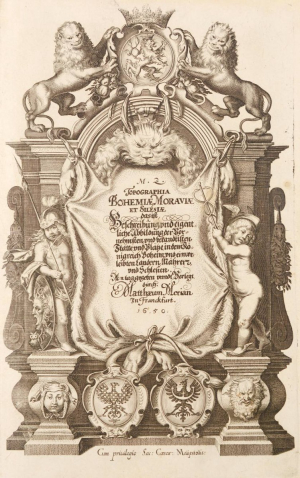 M. Z.
TOPOGRAPHIA
BOHEMIÆ, MORAVIÆ
ET SILESIÆ
das ist
Beschreibung und eigent-
liche Abbildung der Vor-
nehmsten, und bekandtisten
Stätte, und Plätze, in dem Kö-
nigreich Boheim und einver-
leibten Landern, Mähren,
und Schlesien.
An tag gegeben unndt Verlegt
durch
Matthæum Merian
In Franckfurt.
1650.
Cum privilegio Sac: Cæsar: Maiestatis.